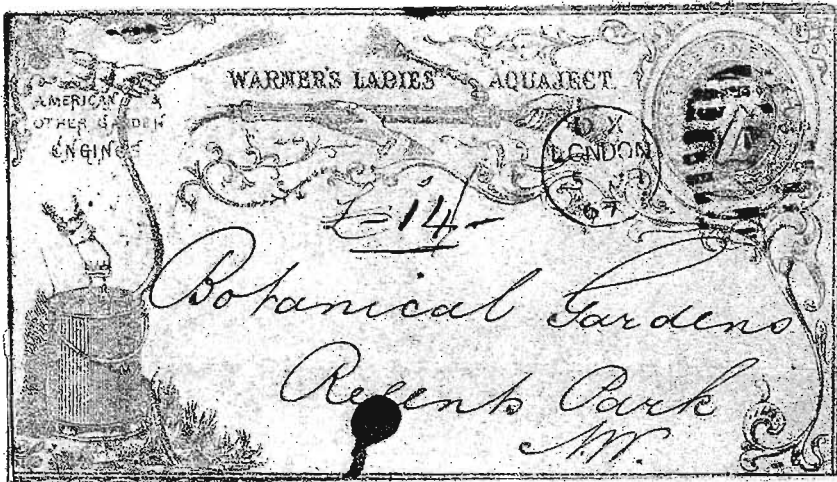 WARNER'S LADIES' AQUAJECT.
AMERICAN &
OTHER GARDEN
ENGINES
LONDON
67
£14/-
Botanical Gardens
Regents Park
N.W.